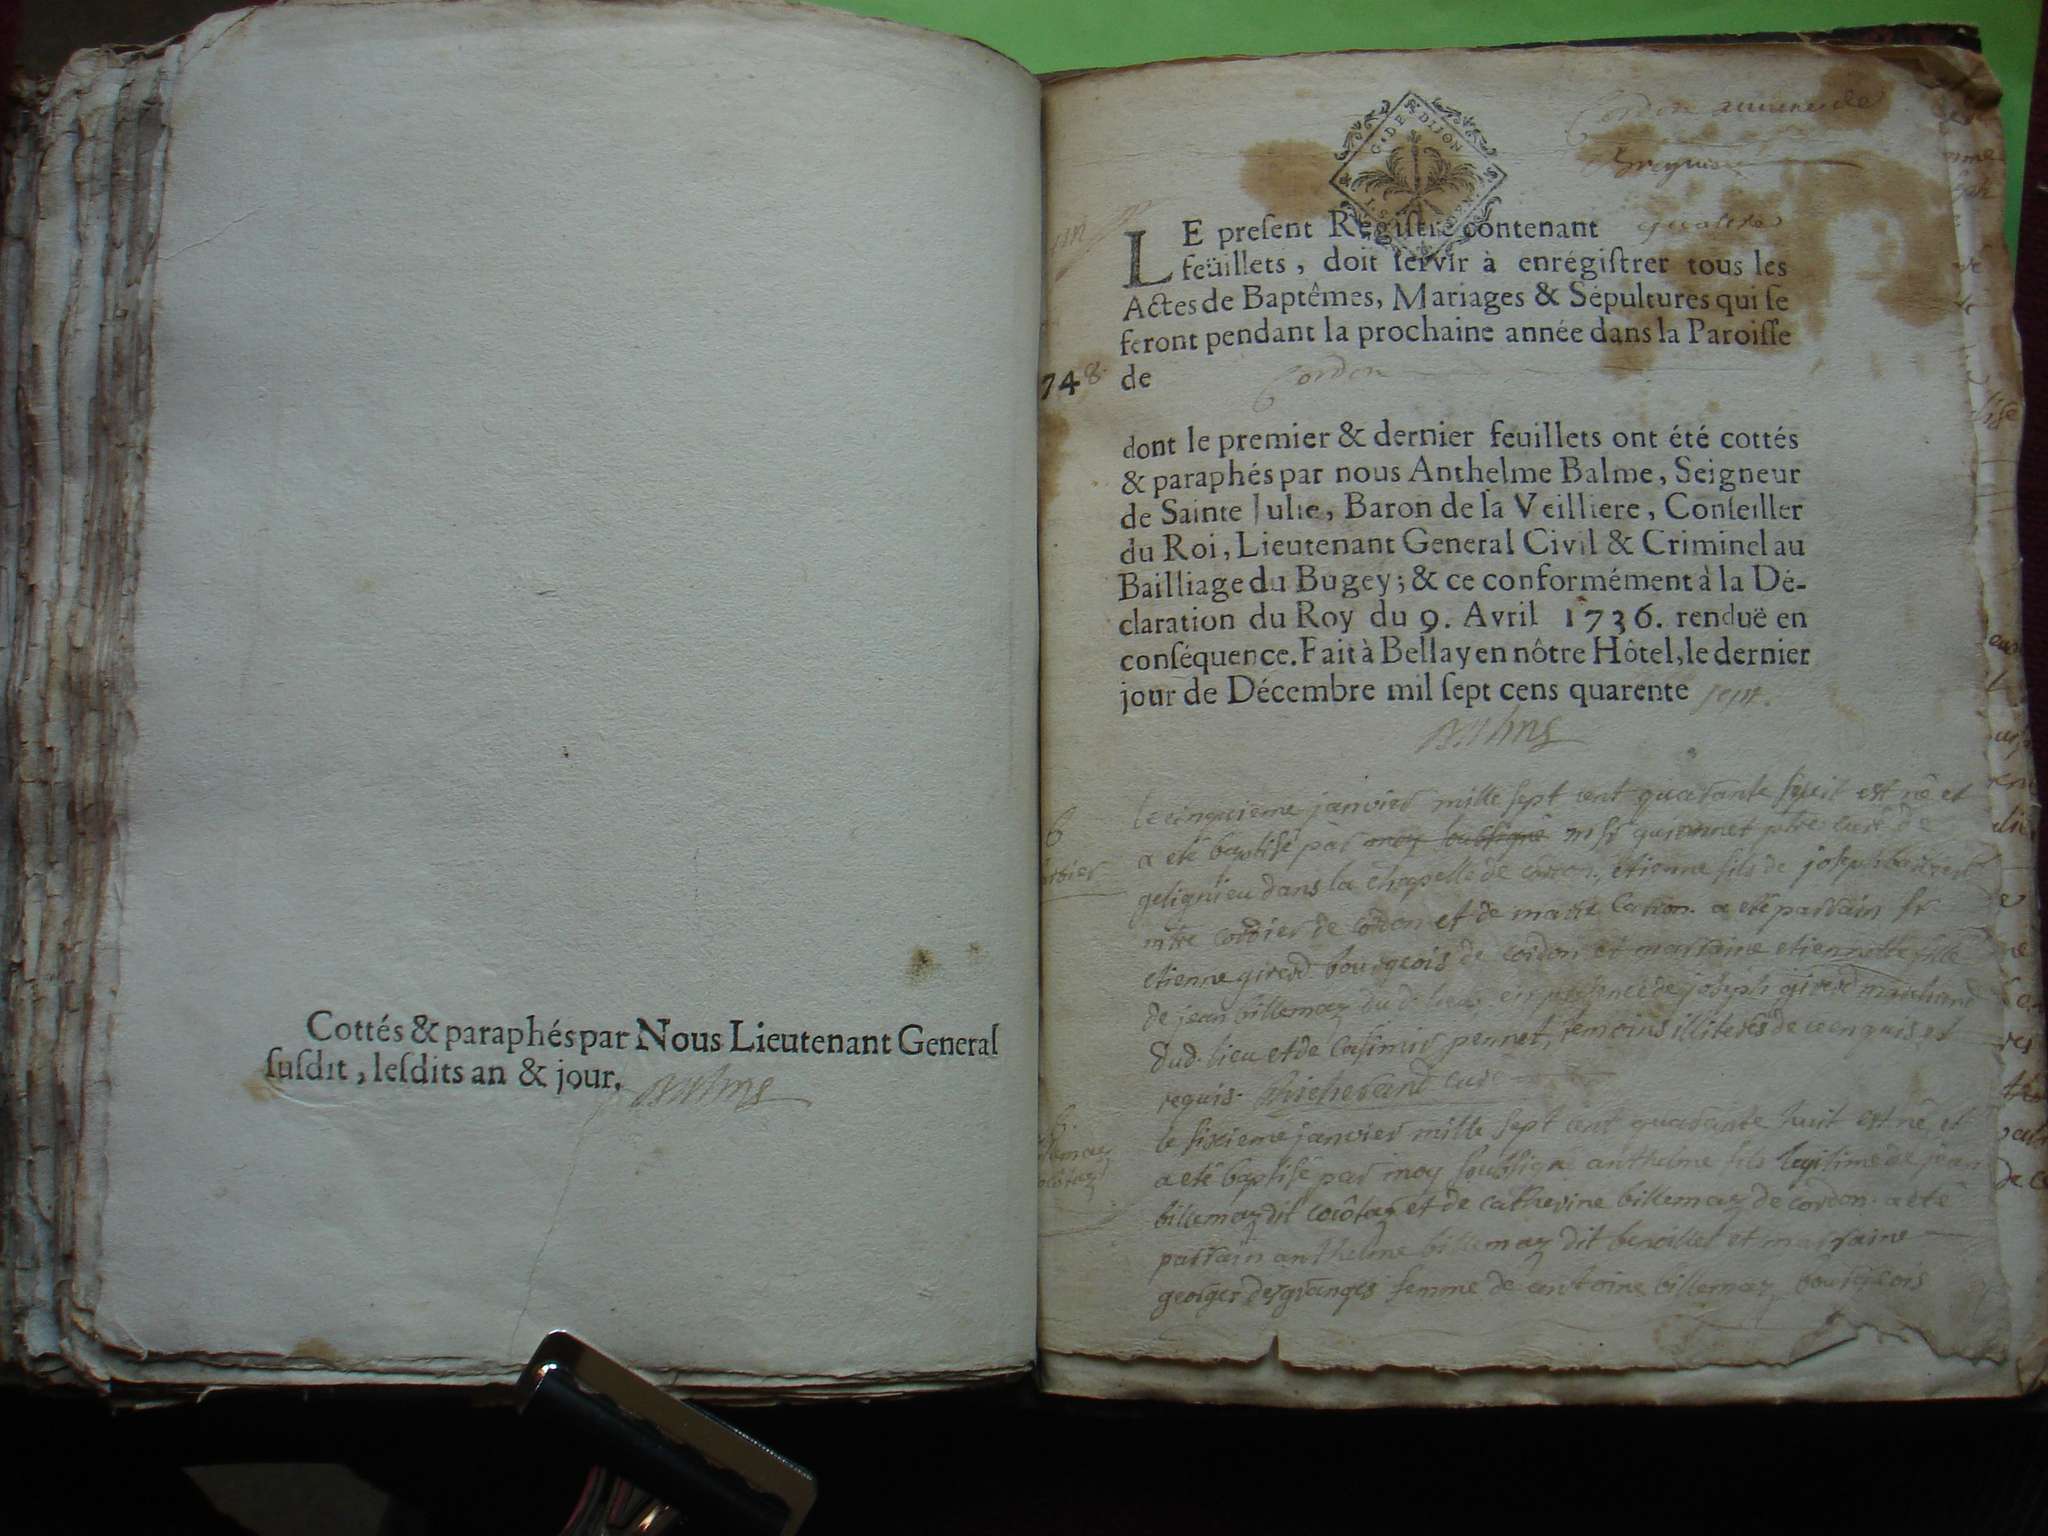 Cottés & paraphés par Nous Lieutenant General
ſuſdit, leſdits an & jour.
G. DE DIJON
Cordon
LE preſent Regiſtre contenant quattre
feüillets, doit ſervir à enrégiſtrer tous les
Actes de Baptêmes, Mariages & Sépultures qui ſe
feront pendant la prochaine année dans la Paroiſſe
748. de Cordon
dont le premier & dernier feuillets ont été cottés
& paraphés par nous Anthelme Balme, Seigneur
de Sainte Julie, Baron de la Veilliere, Conſeiller
du Roi, Lieutenant General Civil & Criminel au
Bailliage du Bugey; & ce conformément à la Dé-
claration du Roy du 9. Avril 1736. renduë en
conſéquence. Fait à Bellay en nôtre Hôtel, le dernier
jour de Décembre mil ſept cens quarente sept.
le cinquieme janvier mille sept cent quarante huit est né et
a eté baptisé par moy soussigné mr guionnet ptre curé de
gelignieu dans la chapelle de cordon, etienne fils de joseph
mtre cordier de cordon et de marie a eté parrain sr
etienne girerd bourgeois de cordon et marraine etiennette fille
de jean billemaz du d. lieu en presence de joseph girerd marchand
dud. lieu et de Casimir pennet, temoins illiterés de ce enquis et
requis. Richerand curé
le sixieme janvier mille sept cent quarante huit est né et
a eté baptisé par moy soussigné anthelme fils legitime de jean
billemaz dit cocôtaz et de catherine billemaz de cordon. a eté
parrain anthelme billemaz dit benoillet et marraine
george desgranges femme de antoine billemaz bourgeois